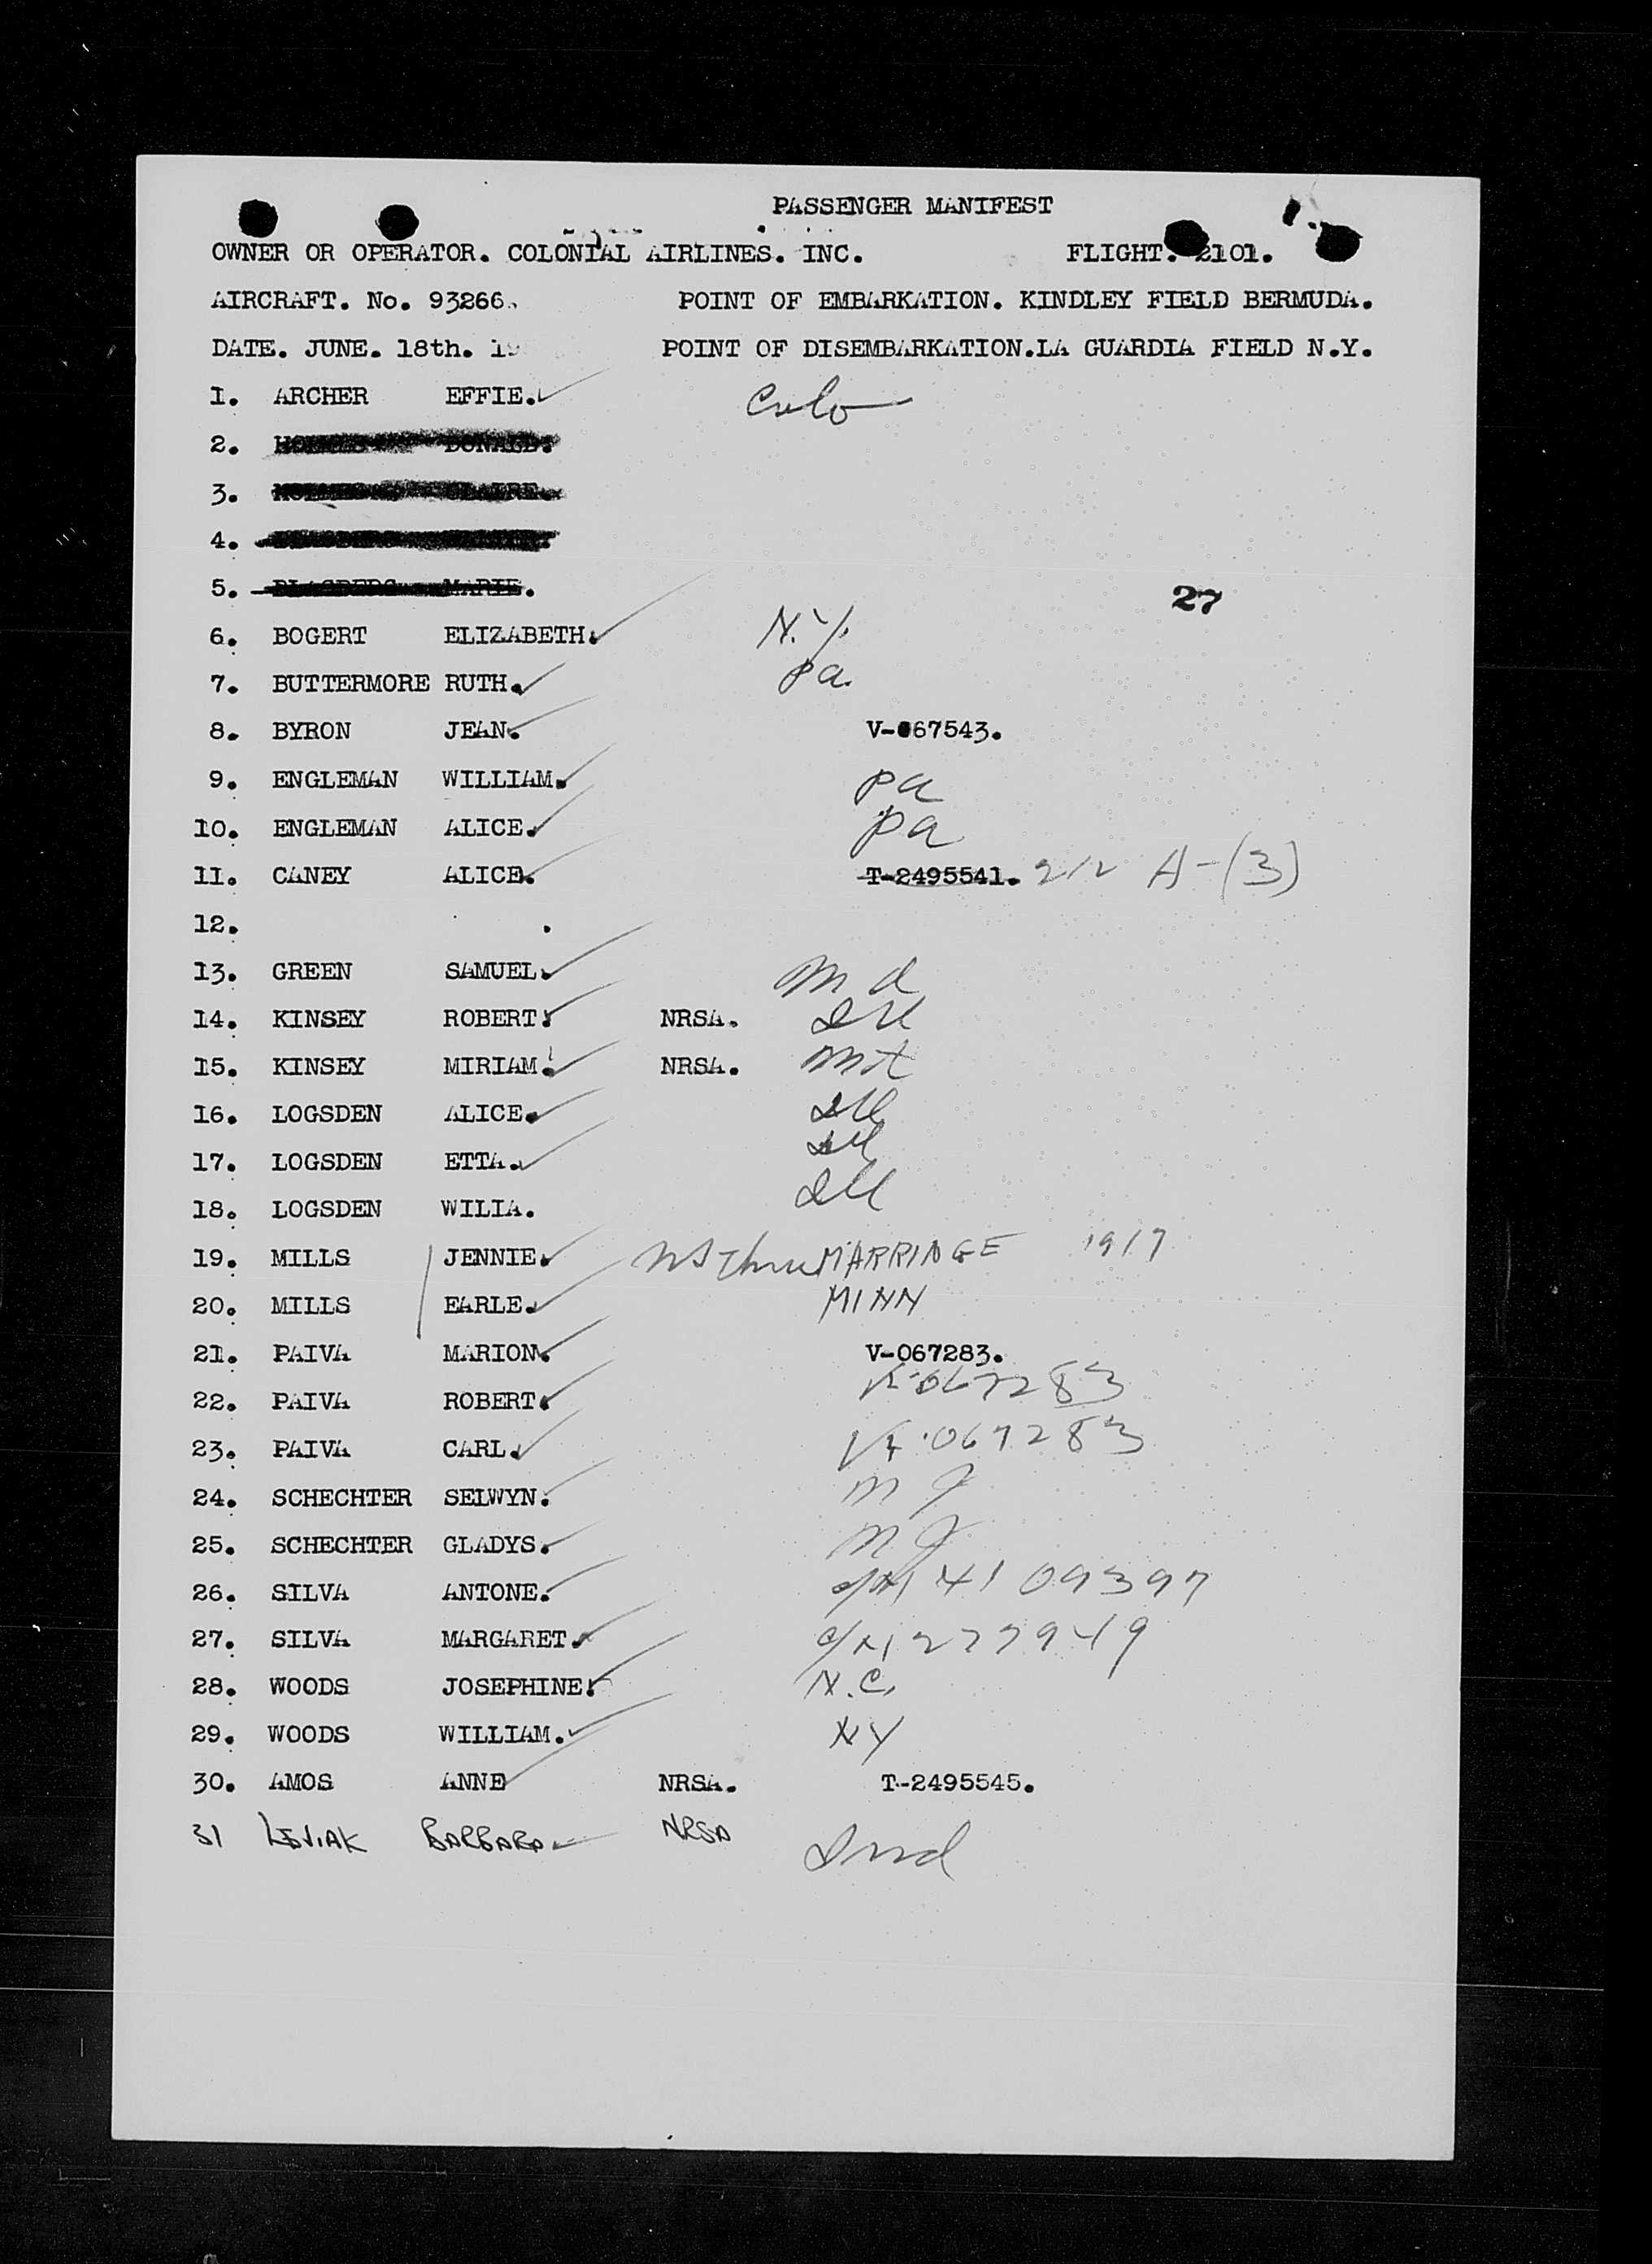 PASSENGER MANIFEST
OWNER OR OPERATOR. COLONIAL AIRLINES. INC. FLIGHT. 2101.
AIRCRAFT. No. 93266. POINT OF EMBARKATION. KINDLEY FIELD BERMUDA.
DATE. JUNE. 18th. POINT OF DISEMBARKATION.LA GUARDIA FIELD N.Y.
1. ARCHER EFFIE. Colo
2. DONALD.
3. CLAIRE.
4.
5. MARIE.
27
6. BOGERT ELIZABETH. N.Y.
7. BUTTERMORE RUTH. Pa.
8. BYRON JEAN. V-067543.
9. ENGLEMAN WILLIAM. Pa
10. ENGLEMAN ALICE. Pa
11. CANEY ALICE. T-2495541. 212 A-(3)
12. .
13. GREEN SAMUEL. Md
14. KINSEY ROBERT. NRSA. Ill
15. KINSEY MIRIAM. NRSA.
16. LOGSDEN ALICE. Ill
17. LOGSDEN ETTA. Ill
18. LOGSDEN WILIA. Ill
19. MILLS JENNIE. thru MARRIAGE 1917
20. MILLS EARLE. MINN
21. PAIVA MARION. V-067283.
22. PAIVA ROBERT. 067283
23. PAIVA CARL. 067283
24. SCHECHTER SELWYN. NJ
25. SCHECHTER GLADYS. NJ
26. SILVA ANTONE. 4109397
27. SILVA MARGARET. 277949
28. WOODS JOSEPHINE. N.C.
29. WOODS WILLIAM. NY
30. AMOS ANNE NRSA. T-2495545.
31 BARBARA NRSA Ind